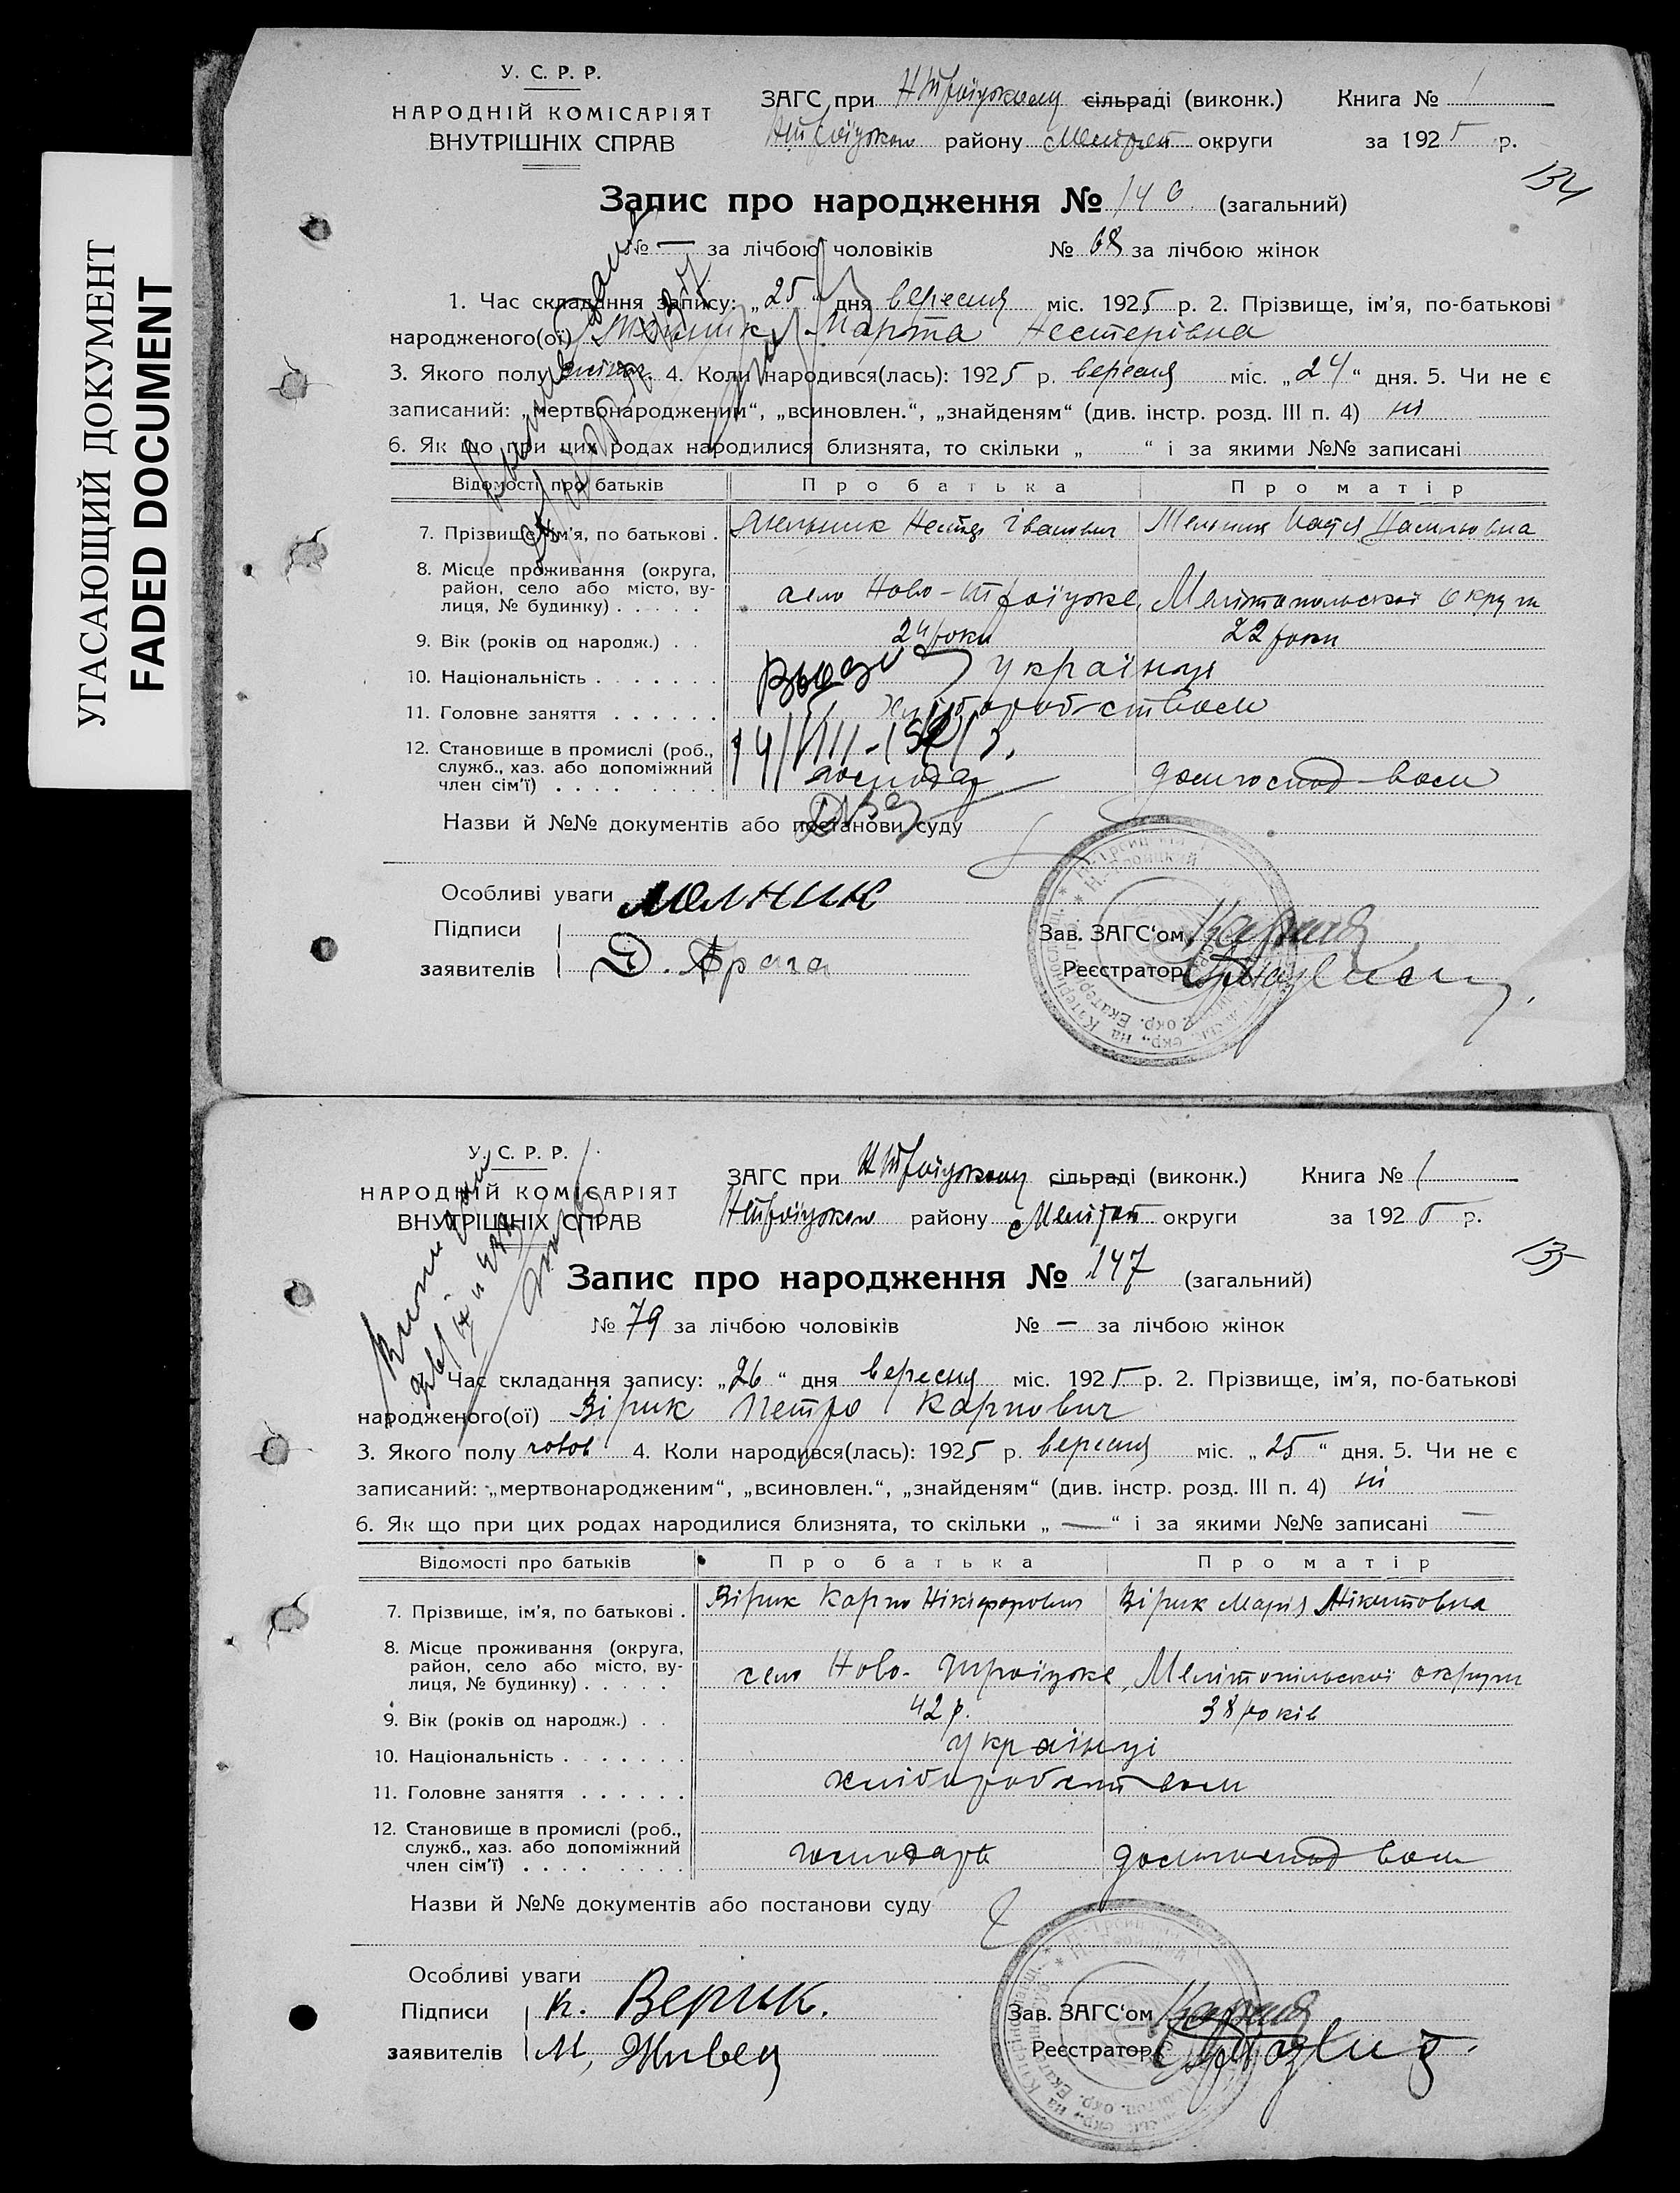 УГАСАЮЩИЙ ДОКУМЕНТ
FADED DOCUMENT
У. С. Р. Р.
НАРОДНІЙ КОМІСАРІЯТ
ВНУТРІШНІХ СПРАВ
ЗАГС при Н Троїцькому сільраді (виконк.) Книга № 1
Н Троїцьком району Мелітоп округи за 1925 р.
134
Запис про народження № 146 (загальний)
№ — за лічбою чоловіків № 68 за лічбою жінок
1. Час складання запису: „25“ дня вересня міс. 1925 р. 2. Прізвище, ім'я, по-батькові
народженого(ої) Мельник Марта Нестерівна
3. Якого полу жіноч. 4. Коли народився(лась): 1925 р. вересня міс. „24“ дня. 5. Чи не є
записаний: „мертвонародженим“, „всиновлен.“, „знайденям“ (див. інстр. розд. III п. 4) ні
6. Як що при цих родах народилися близнята, то скільки „ “ і за якими №№ записані
Відомості про батьків Про батька Про матір
7. Прізвище, ім'я, по батькові . Мельник Нестер Іванович Мельник
8. Місце проживання (округа,
район, село або місто, ву-
лиця, № будинку) . . . . . село Ново-Троїцьке, Мелітопольської округи
9. Вік (років од народж.) . . 24 роки 22 роки
10. Національність . . . . . . . українці
11. Головне заняття . . . . . . хліборобством
12. Становище в промислі (роб.,
служб., хаз. або допоміжний
член сім'ї) . . . . . . . . господар домгосподвом
Назви й №№ документів або постанови суду
Особливі уваги
Мелник
Підписи
заявителів Д. Брага
Зав. ЗАГС‘ом
Реєстратор
У. С. Р. Р.
НАРОДНІЙ КОМІСАРІЯТ
ВНУТРІШНІХ СПРАВ
ЗАГС при Н Троїцькому сільраді (виконк.) Книга № 1
Н Троїцьком району Мелітоп округи за 1925 р.
135
Запис про народження № 147 (загальний)
№ 79 за лічбою чоловіків № — за лічбою жінок
Час складання запису: „26“ дня вересня міс. 1925 р. 2. Прізвище, ім'я, по-батькові
народженого(ої) Вірик Петро Карпович
3. Якого полу чолов 4. Коли народився(лась): 1925 р. вересня міс. „25“ дня. 5. Чи не є
записаний: „мертвонародженим“, „всиновлен.“, „знайденям“ (див. інстр. розд. III п. 4) ні
6. Як що при цих родах народилися близнята, то скільки „ — “ і за якими №№ записані —
Відомості про батьків Про батька Про матір
7. Прізвище, ім'я, по батькові . Вірик Карпо Нікіфорович Вірик Марія Нікитовна
8. Місце проживання (округа,
район, село або місто, ву-
лиця, № будинку) . . . . . село Ново-Троїцьке, Мелітопільської округи
9. Вік (років од народж.) . . 42 р. 38 років
10. Національність . . . . . . . українці
11. Головне заняття . . . . . . хліборобством
12. Становище в промислі (роб.,
служб., хаз. або допоміжний
член сім'ї) . . . . . . . . господарь домгосподвом
Назви й №№ документів або постанови суду
Особливі уваги
Підписи К. Верик.
заявителів М. Живец
Зав. ЗАГС‘ом
Реєстратор